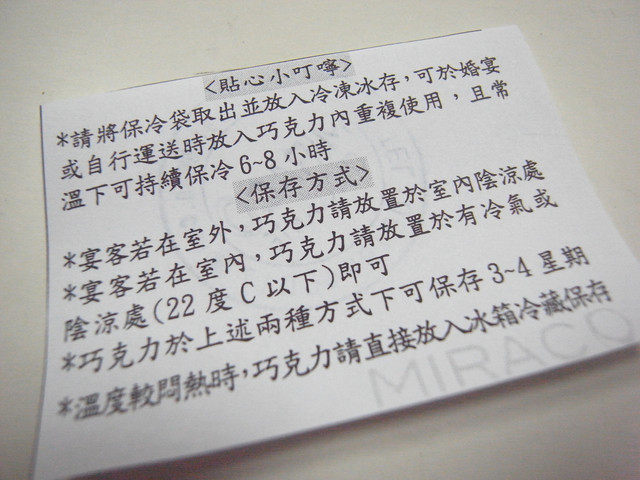 <貼心小叮嚀>
*請將保冷袋取出並放入冷凍冰存,可於婚宴
或自行運送時放入巧克力內重複使用,且常
溫下可持續保冷6~8小時
<保存方式>
*宴客若在室外,巧克力請放置於室內陰涼處
*宴客若在室內,巧克力請放置於有冷氣或
陰涼處(22度C以下)即可
*巧克力於上述兩種方式下可保存3~4星期
*溫度較悶熱時,巧克力請直接放入冰箱冷藏保存
MIRACO